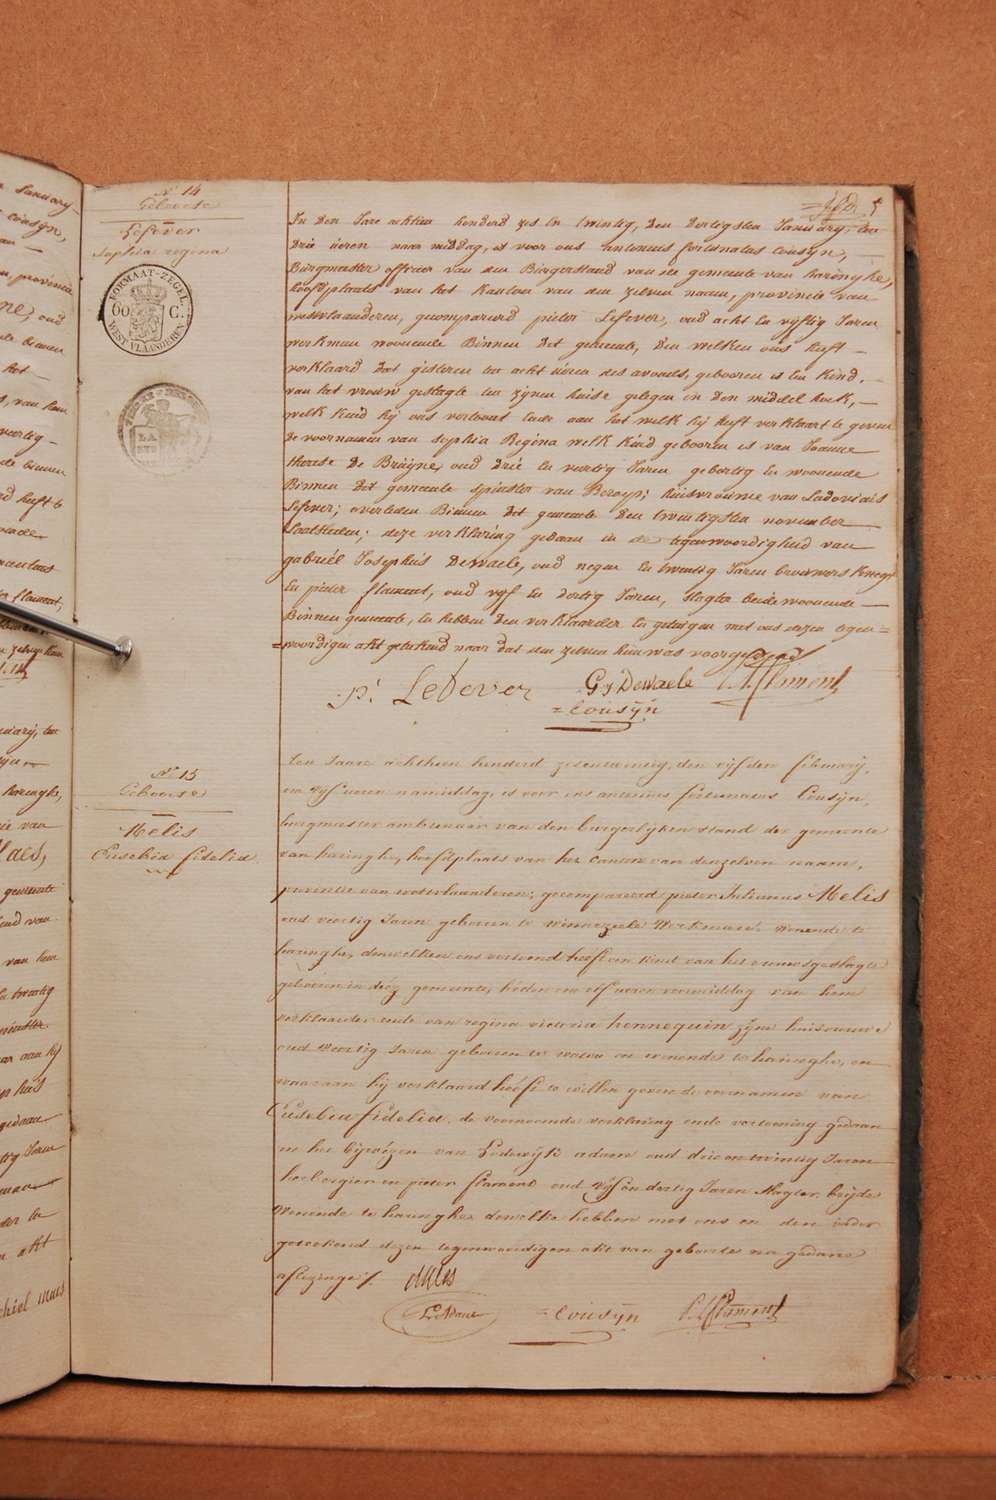 January
cousyn,
provincie
oud
binnen
het
van hun
veertig
de binnen
heeft te
flament,
January, ten
haringhe,
gemeente
van hun
aan hij
gedaan
Jaren
akt
N° 14
Geboorte
Lefever
Sophia regina
FORMAAT-ZEGEL.
60 C.
WEST VLAANDEREN
5
In Den Jare achtien honderd zes En twintig, den dertigsten January, ten
drie ueren naar middag, is voor ons antonius fortunatus cousyn,
Burgmeester officier van den Burgerstand van de gemeente van haringhe,
hoofdplaats van het kanton van den zelven naem, provincie van
westvlaanderen, gecompareerd pieter Lefever, oud acht En vyftig Jaren
werkman woonende Binnen Det gemeente, Den welken ons heeft
verklaard Dat gisteren ten acht üeren des avonds, gebooren is Een Kind,
van het vrouw geslagte ten zynen huise gelegen in den middel hoek,
welk Kind hy ons vertoont Ende aan het welk hy heeft verklaart te geven
De voornamen van Sophia Regina welk Kind gebooren is van Joanne
therese De Bruyne, oud Drie En veertig Jaren geboortig En woonende
Binnen Det gemeente spinster van Beroep; huisvrouwe van Ludovicus
Lefever; overleden Binnen Det gemeente Den twintigsten november
Laatstleden; deze verklaring gedaan in de tegenwoordigheid van
gabriël Josephus Dewaele, oud negen En twintig Jaren brouwers Knegt
En pieter flament, oud vyf En dertig Jaren, slagter beide woonende
Binnen gemeente, En hebben Den verklaarder En getuigen met ons dezen tegen=
=woordigen akt geteekend naar dat den zelven hun was voorgelezen
p: Lefever G J DeWaele P. J Flament
= Cousÿn
N° 15
Geboorte
Melis
Eusebia fidelia
Ten Jaare achthien honderd zesentwintig, den vijfden februarij,
om vijf uren namiddag, is voor ons antonius fortunatus Cousijn,
burgmeester ambtenaar van den burgerlijken stand der gemeente
van haringhe, hoofdplaats van het Canton van denzelven naam,
provintie van westvlaanderen; gecompareerd pieter Julianus Melis
oud veertig Jaren geboren te winnezeele Werkman, wonende te
haringhe, denwelken ons vertoond heeft een kind van het vrouwgeslagte
geboren in dezeg gemeente, heden om elf uren voormiddag van hem
verklaarder ende van regina victoria hennequin zijne huisvrouwe
oud veertig Jaren geboren te watou en wonende te haringhe, en
waaraan hij verklaard heeft te willen geven de voornamen van
Eusebia fidelia. de voornoemde verklaring ende vertooning gedaan
in het bijwezen van Lodewijk adam oud drie en twintig Jaren
herbergier en pieter flament oud vijf en dertig Jaren slagter, beijde
Wonende te haringhe, dewelke hebben met ons en den vader
geteekend dezen tegenwoordigen akt van geboorte na gedane
aflezinge
Melis
L. Adam = Cousÿn P. J Flament